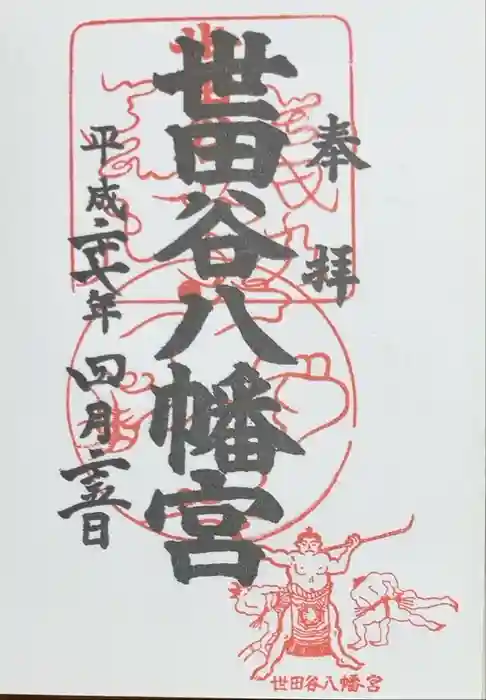 奉拝
世田谷八幡宮
平成二十七年四月二十五日
世田谷八幡宮